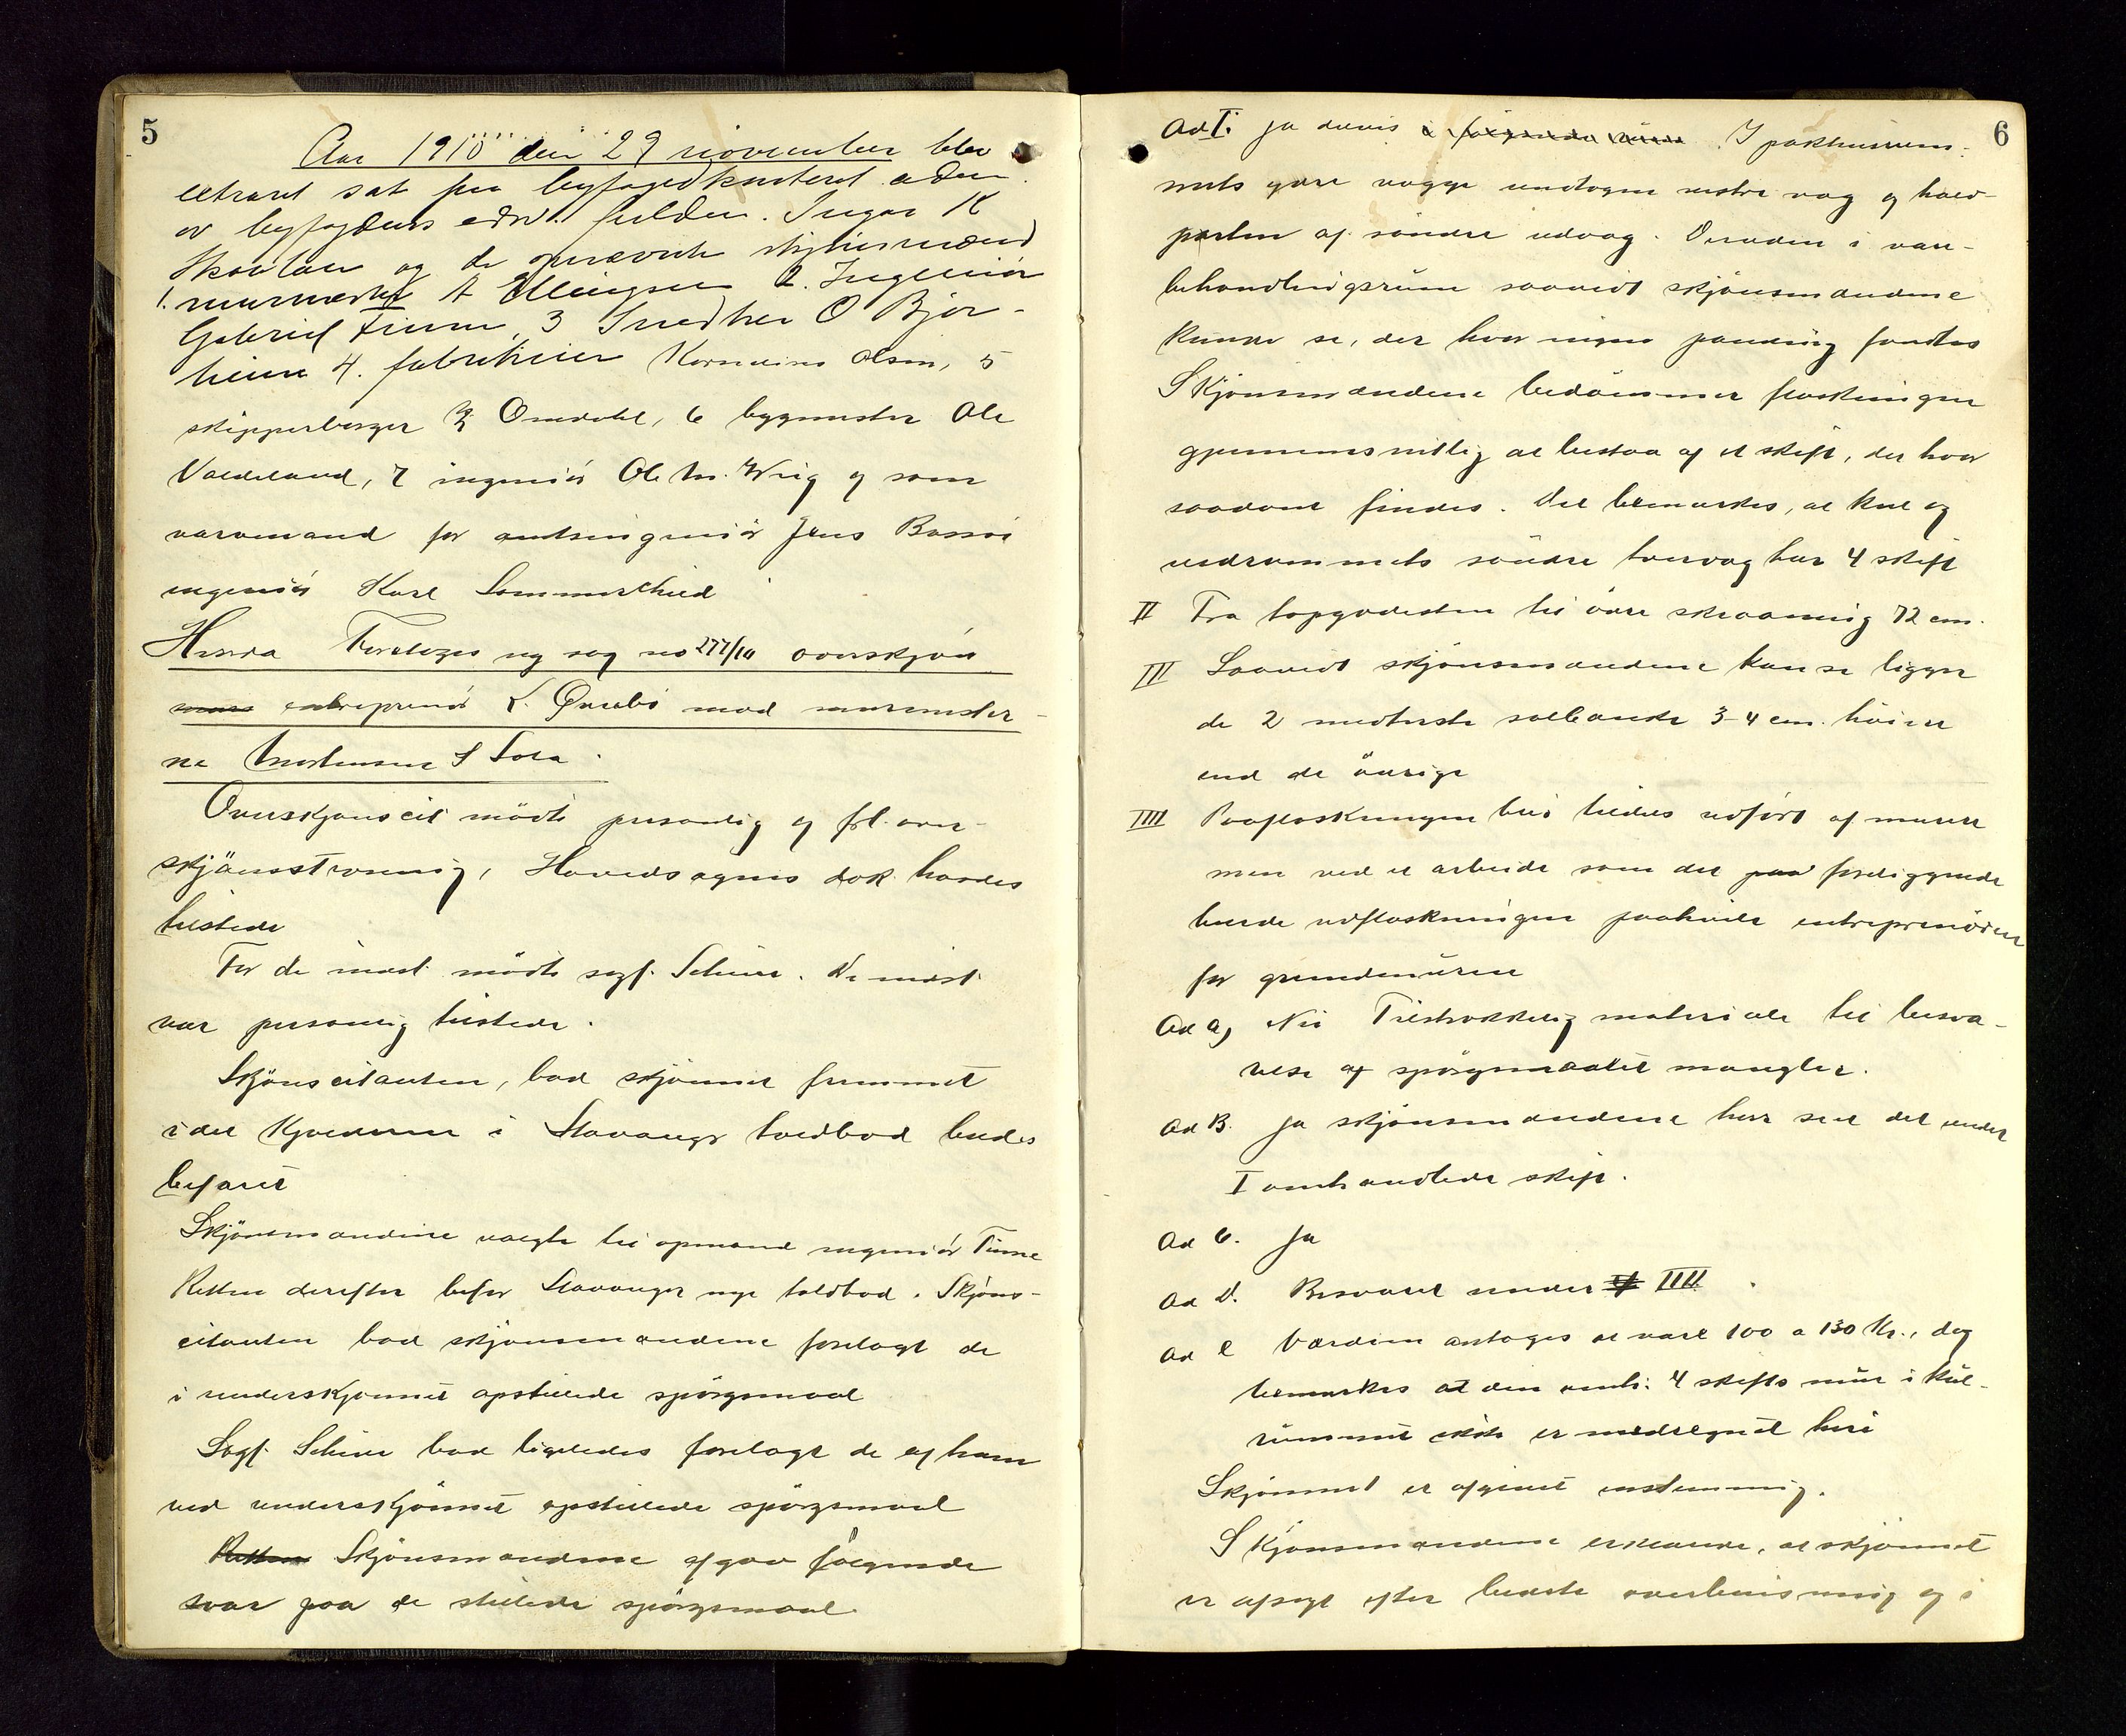 5
Aar 1910 den 29 november blev
extraret sat paa byfogedkontoret adm.
av byfogdens edsv. fuldm. Ingar K
Skavlan og de opnævnte skjønsmænd
1. murmester A Ellingsen 2. Ingeniør
Gabriel Finne, 3 Snedker O Bjor-
heim 4. fabrikeier Kornelius Olsen, 5
skipperborger Omdahl, 6 bygmester Ole
Valdeland, 7 ingeniør Ole M. Wiig og som
varamand for amtsingeniør Jens Bassøe
ingeniør Karl Sommerschield
Hvorda Foretoges ny sag no 277/10 overskjøn
entreprenør L. Qvelbø mod murmester-
ne Mortensen & Sola.
Overskjønscit mødte personlig og frl. over-
skjønsstevning, Hovedsagens dok havdes
tilstede
For de indst. mødte sagf. Schive. De indst
var personlig tilstede.
Skjønscitanten, bad skjønnet fremmet
idet Kjælderne i Stavanger toldbod bedes
befaret
Skjønsmændene valgte til opmand ingeniør Finne
Retten derefter befor Stavanger nye toldbod. Skjøns-
citanten bad skjønsmændene forelagt de
i underskjønnet opstillede spørgsmaal
Sagf. Schive bad ligeledes forelagt de af ham
ved underskjønnet opstillede spørgsmaal
Retten Skjønsmændene afgav følgende
svar paa de stillede spørgsmaal.
6
Ad I. Ja delvis i følgende rum I pakhusrum-
mets ydre vægge undtagen vestre væg og halv-
parten af søndre udvæg. Desuden i vare-
behandlingsrum saavidt skjønsmændene
kunde se, der hvor ingen panding fandtes
Skjønsmændene bedømmer flaskningen
gjennemsnitlig at bestaa af et skift, der hvor
saadant findes. Det bemærkes, at kul og
vedrummets søndre tvervæg har 4 skift
II Fra topgvedsten til øvre skraaning 72 cm.
III Saavidt skjønsmændene kan se ligger
de 2 midterste solbænke 3-4 cm. høiere
end de øvrige
IIII Paaflaskningen blir tildels udført af murer
men ved et arbeide som det paa foreliggende
burde udflaskningen paahvile entreprenøren
for grundmuren
Ad a, Nei Tilstrækkelig materiale til besva-
relse af spørgsmaalet mangler.
Ad B. Ja skjønsmændene har set det under
I omhandlede skift.
Ad C. Ja
Ad D. Besvaret under IIII.
Ad e Værdien antages at være 100 a 130 Kr., dog
bemærkes at den omh. 4 skifts mur i kul-
rummet ikke er medregnet heri
Skjønnet er afgivet enstemmig.
Skjønsmændene erklærede, at skjønnet
er afsagt efter bedste overbevisning og i